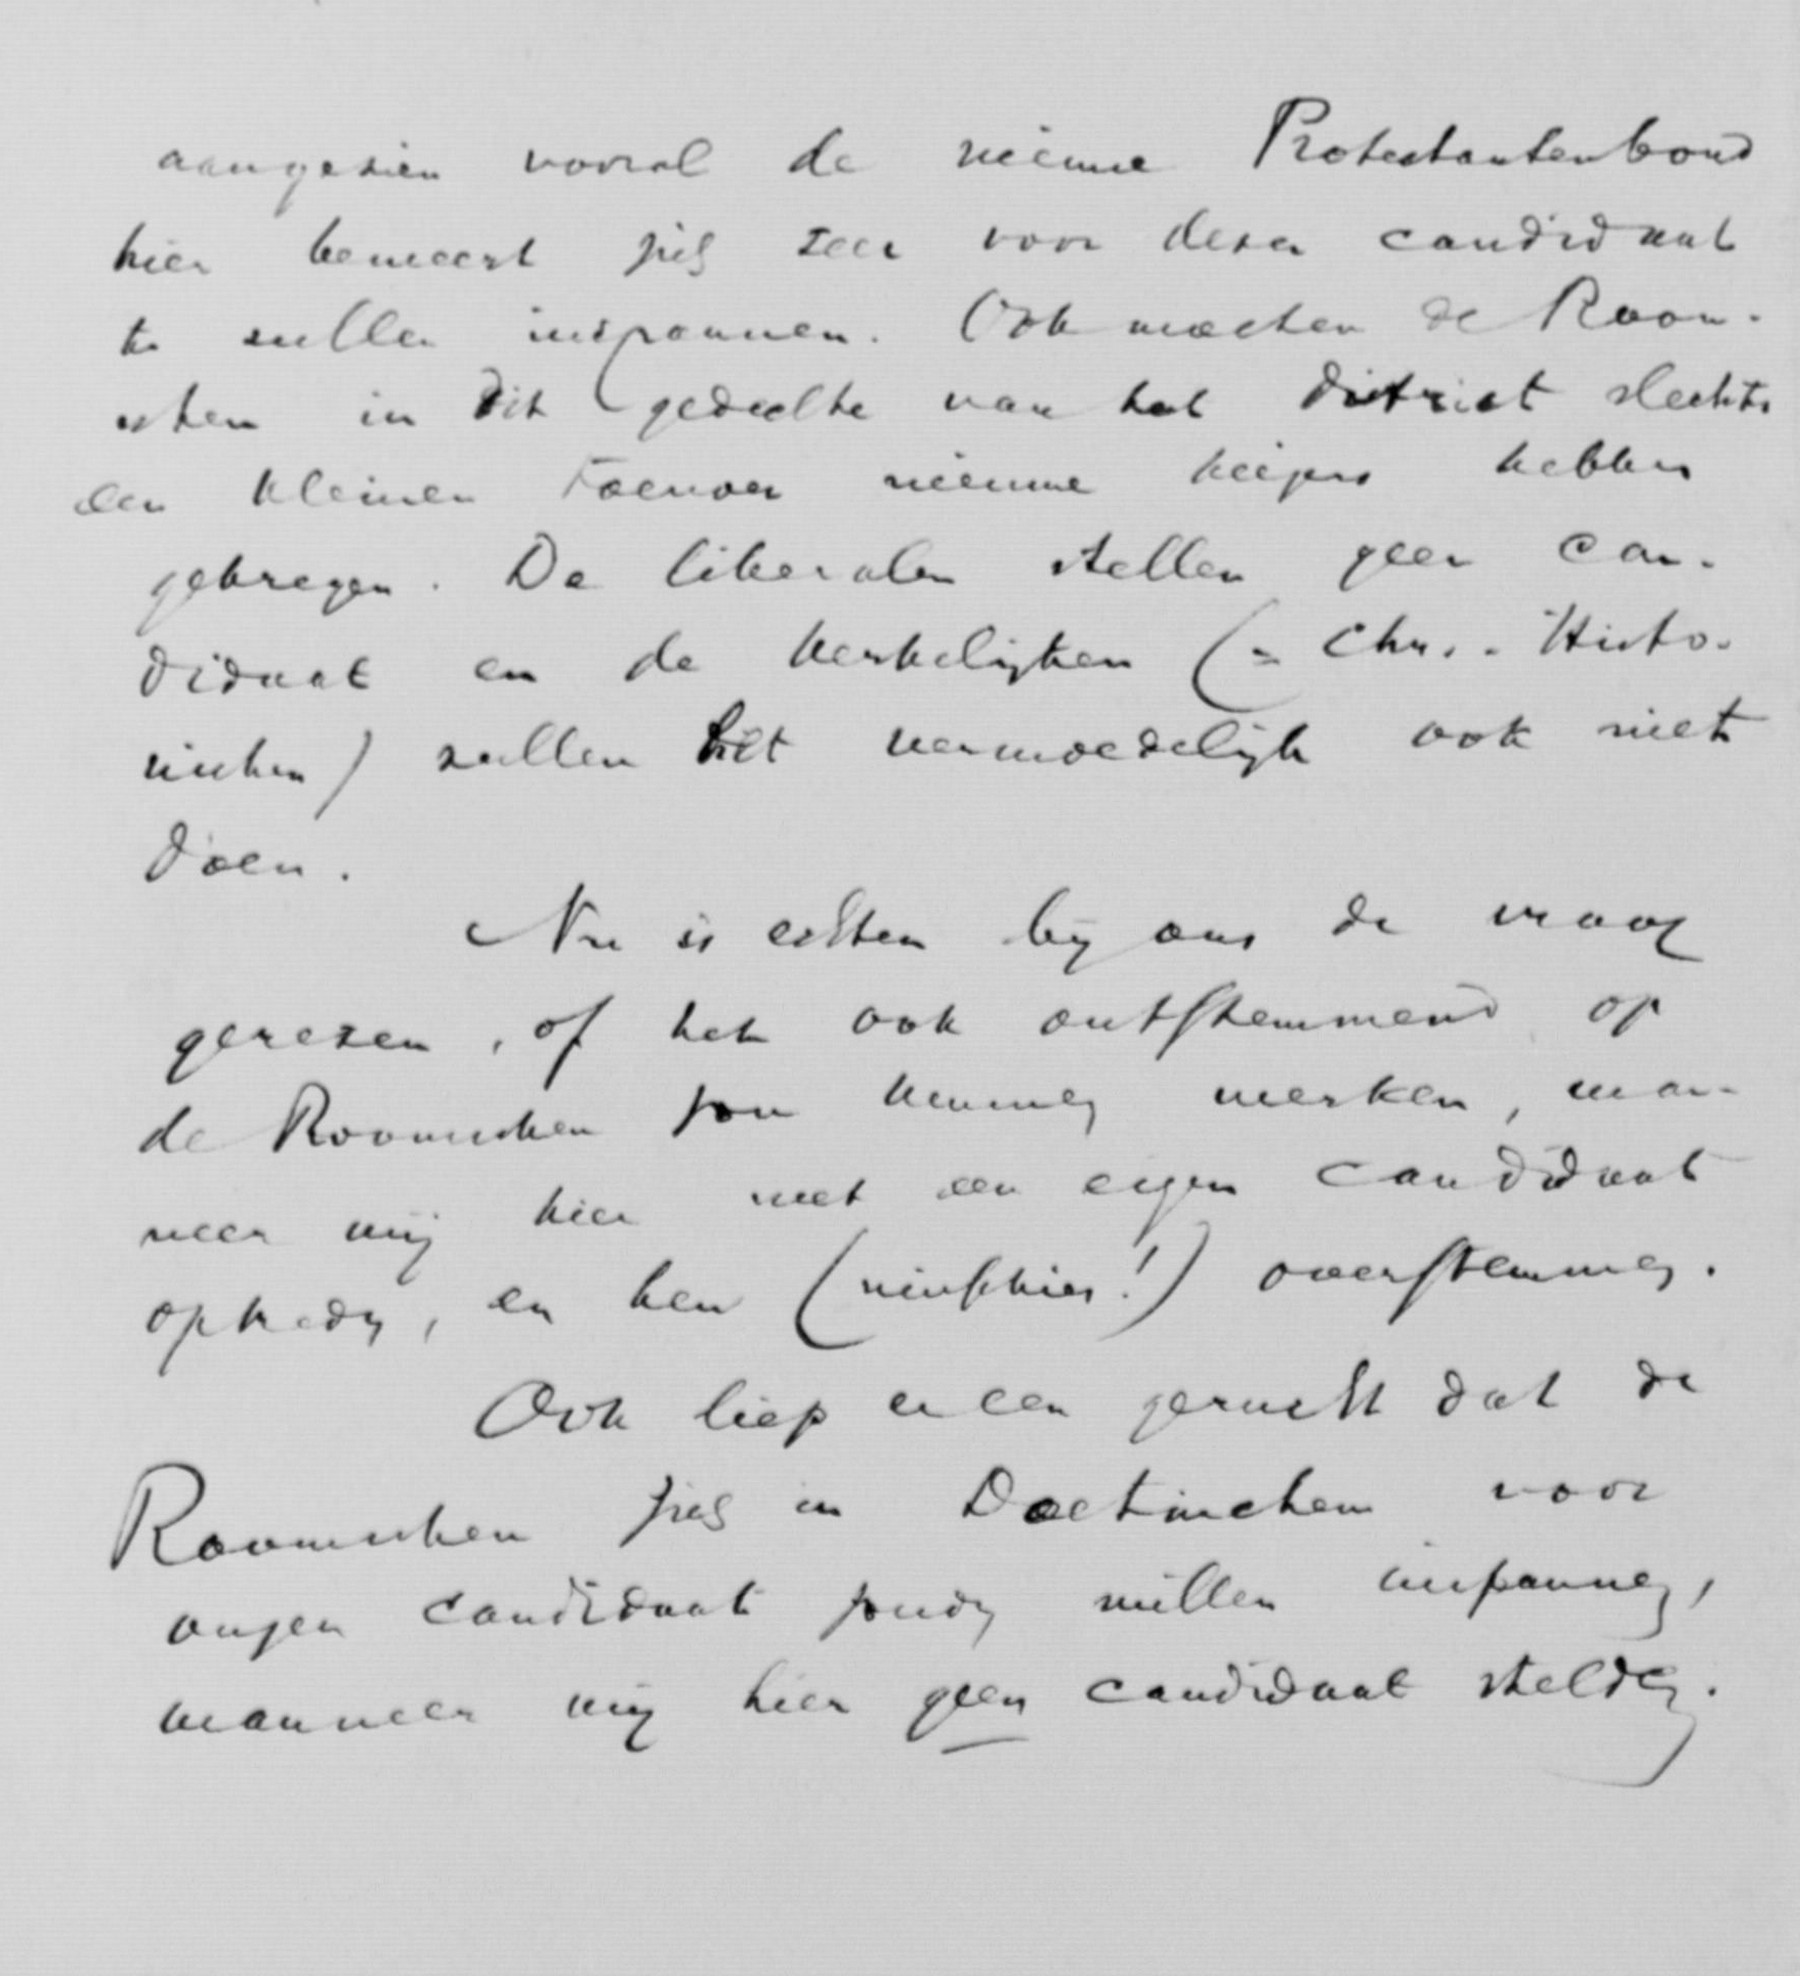 aangezien vooral de nieuwe Protestantenbond
hier beweert zich zeer voor dezen candidaat
te zullen inspannen. Ook moeten de Room-
schen in dit gedeelte van het district slechts
een kleinen toevoer nieuwe kiezers hebben
gekregen. De liberalen stellen geen can-
didaat en de kerkelijken (= Chr. - Histo-
rischen) zullen het vermoedelijk ook niet
doen.
Nu is echter bij ons de vraag
gerezen, of het ook ontstemmend op
de Roomschen zou kunnen werken, wan-
neer wij hier met een eigen candidaat
optreden, en hen (niet hier!) overstemmen.
Ook liep er een gerucht dat de
Roomschen zich in Doetinchem voor
onzen candidaat zouden willen inspannen,
wanneer wij hier geen candidaat stelden.